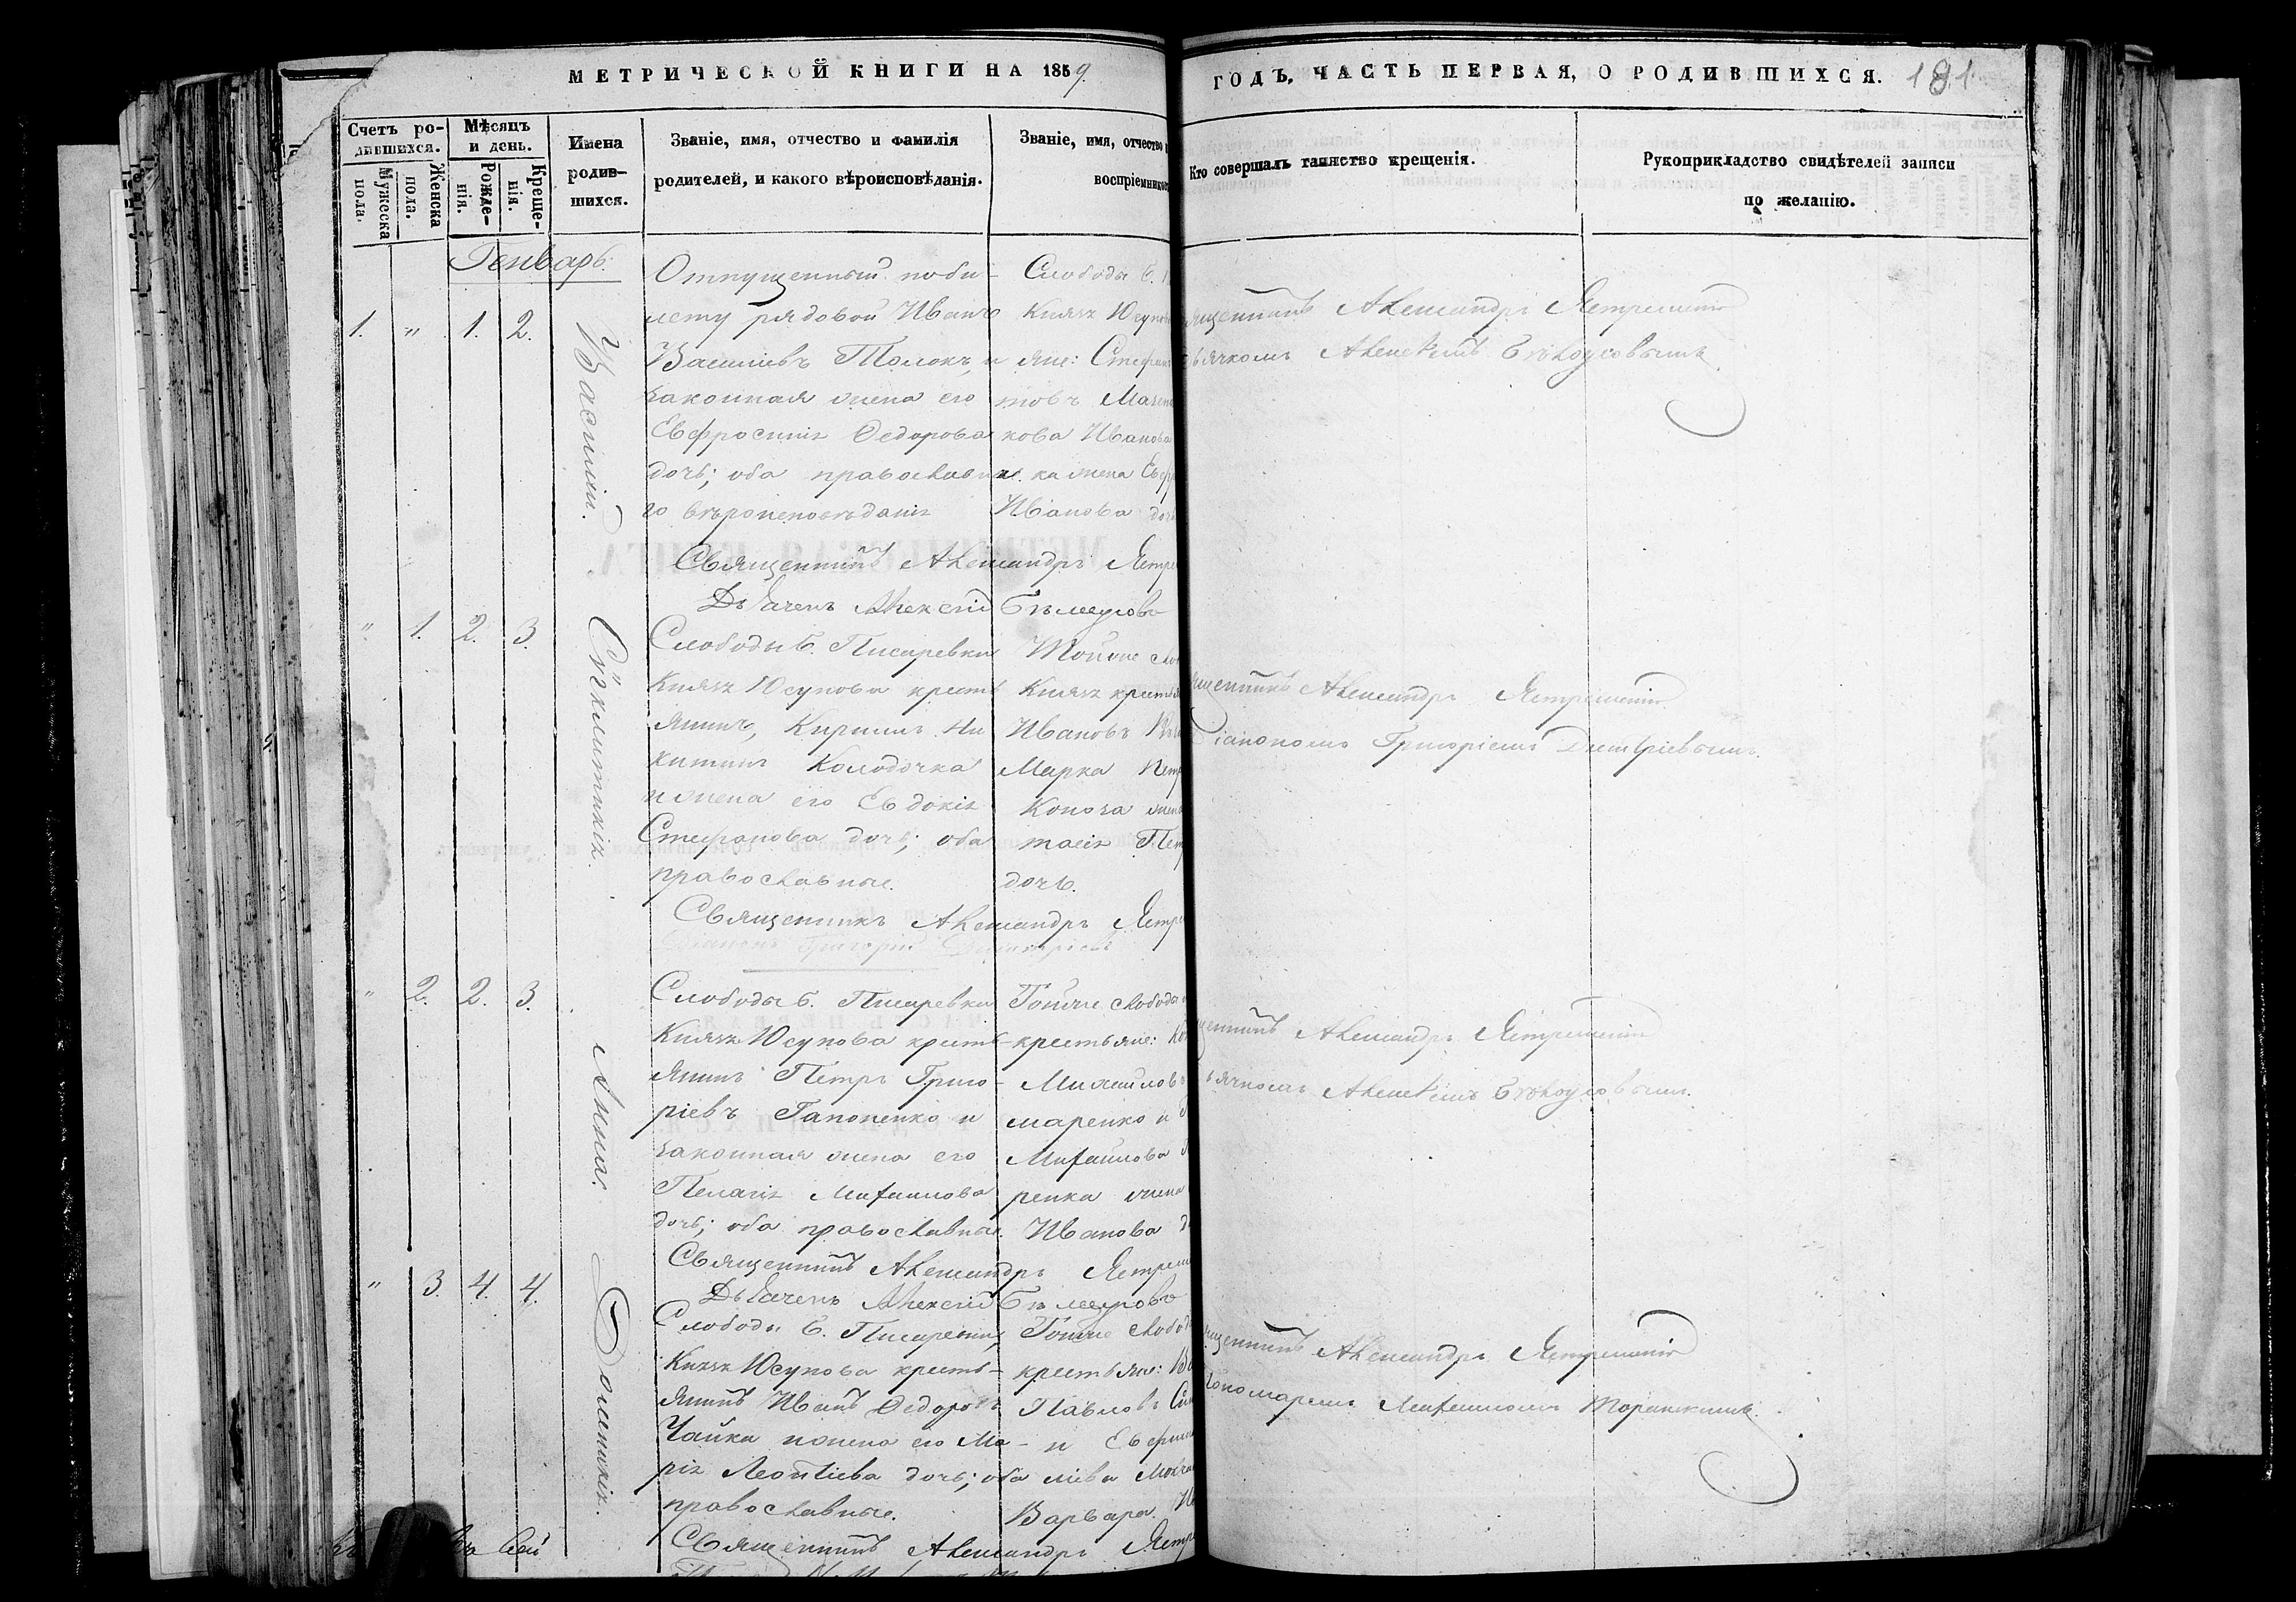 МЕТРИЧЕСКОЙ КНИГИ НА 1859
ГОДЪ, ЧАСТЬ ПЕРВАЯ, О РОДИВШИХСЯ. 181
Счетъ ро-
дившихся.
Мужеска
пола.
Женска
пола.
Мѣсяцъ
и день.
Рожде-
нія.
Креще-
нія.
Имена
родив-
шихся.
Званіе, имя, отчество и фамилія
родителей, и какого вѣроисповѣданія.
Званіе, имя, отчество
воспріемников
Кто совершалъ таинство крещенія.
Рукоприкладство свидѣтелей записи
по желанію.
Генварь.
1. " 1. 2.
Василій.
Отпущенный по би-
лету рядовой Иванъ
Васильевъ Толокъ, и
законная жена его
Евфросинія Федорова
дочь; оба православна
го вѣроисповѣданія
Слободы Б.
Князя Юсупов
яне: Стефан
товъ
кова Иванова
ка жена Евфр
Иванова дочь
Священникъ Александръ Ястре
Дьячекъ Алексій Бѣлоусовъ
ященникъ Александръ Ястремскій
ьячкомъ Алексѣемъ Бѣлоусовымъ
" 1. 2. 3.
Сѵнклитикія.
Слободы Б. Писаревки
Князя Юсупова кресть
янинъ, Кириллъ Ни
китинъ Колодочка
и жена его Евдокія
Стефанова дочь; оба
православные.
Тойже сло
Князя крестья
Ивановъ
Марка Петр
Коноза жен
тасія Пет
дочь.
Священникъ Александръ Ястре
Діаконъ Григорій Димитріевъ
щенникъ Александръ Ястремскій
Діакономъ Григоріемъ Дмитріевымъ.
" 2. 2. 3.
Анна.
Слободы Б. Писаревки
Князя Юсупова кресть-
янинъ Петръ Григо-
ріевъ Гапоненко и
законная жена его
Пелагія Михаилова
дочь; оба православные.
Тойже слободы
крестьяне:
Михаиловъ
маренко и
Михаилова
ренка жена
Иванова д
Священникъ Александръ Ястрем
Дьячекъ Алексій Бѣлоусовъ
щенникъ Александръ Ястремскій
ьячкомъ Алексѣемъ Бѣлоусовымъ.
" 3. 4. 4.
Домникія.
Слободы Б. Писаревки,
Князя Юсупова кресть-
янинъ Иванъ Федоровъ
Чайка и жена его Ма-
рія Леонтіева дочь; оба
православные.
Тойже слобод
крестьяне:
Павловъ
и Евфим
ліева
Варвара.
Священникъ Александръ Ястр
щенникъ Александръ Ястремскій
пономаремъ Михаиломъ Торанскимъ.